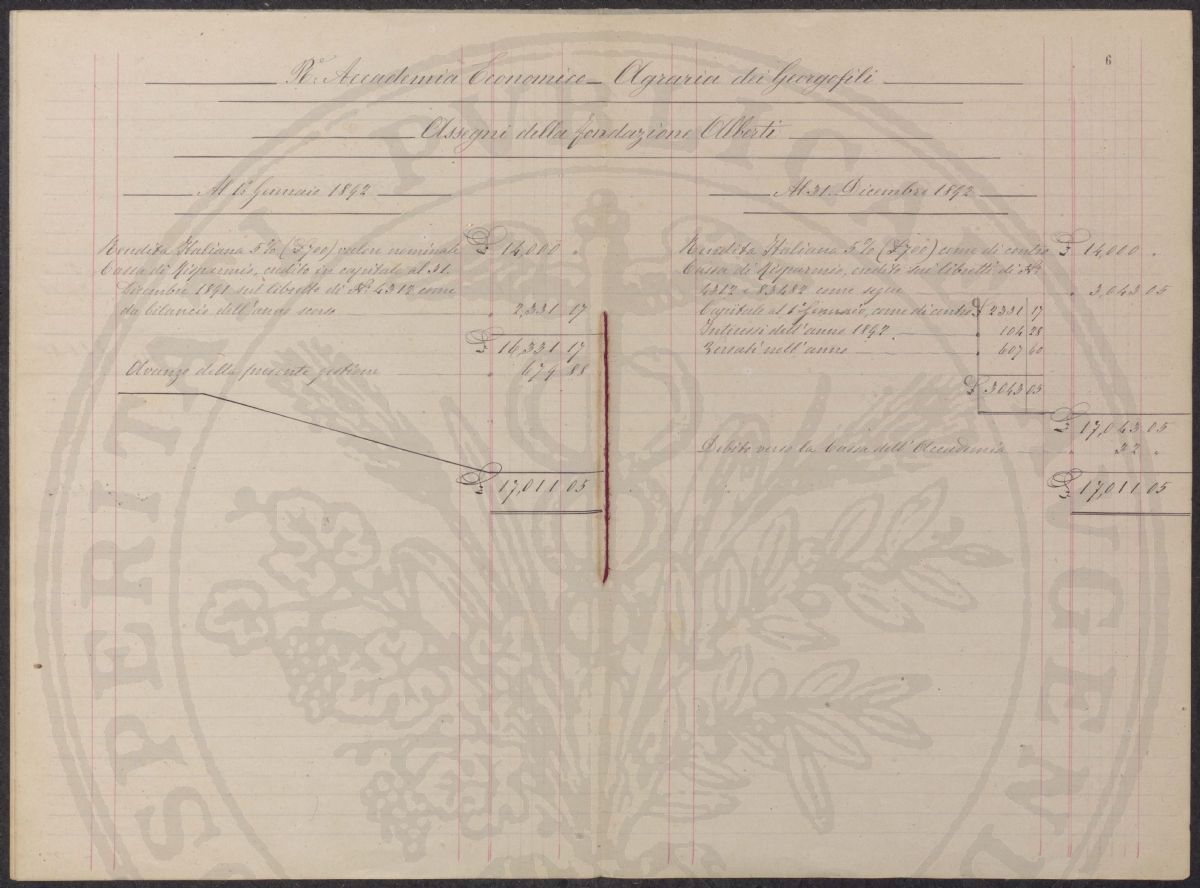 6
Rᵉ. Accademia Economico-Agraria dei Georgofili
Assegni della fondazione Alberti
Al 1° Gennaio 1892
Rendita Italiana 5% (£700) valore nominale £ 14,000 "
Cassa di Risparmio, credito in capitale al 31.
Dicembre 1891 sul libretto di N° 4312 come
da bilancio dell'anno scorso " 2,331 17
£ 16,331 17
Avanzo della presente gestione " 679 88
£ 17,011 05
Al 31. Dicembre 1892
Rendita Italiana 5% (£700) come di contro £ 14,000 "
Cassa di Risparmio, credito sui libretti di N°
4312 e 83482 come segue " 3,043 05
Capitale al 1° Gennaio, come di contro £ 2331 17
Interessi dell'anno 1892 " 104 28
Versati nell'anno " 607 60
£ 3043 05
£ 17,043 05
Debito verso la Cassa dell'Accademia " 32 "
£ 17,011 05
PROSPERITATI PVBLICAE AVGENDAE